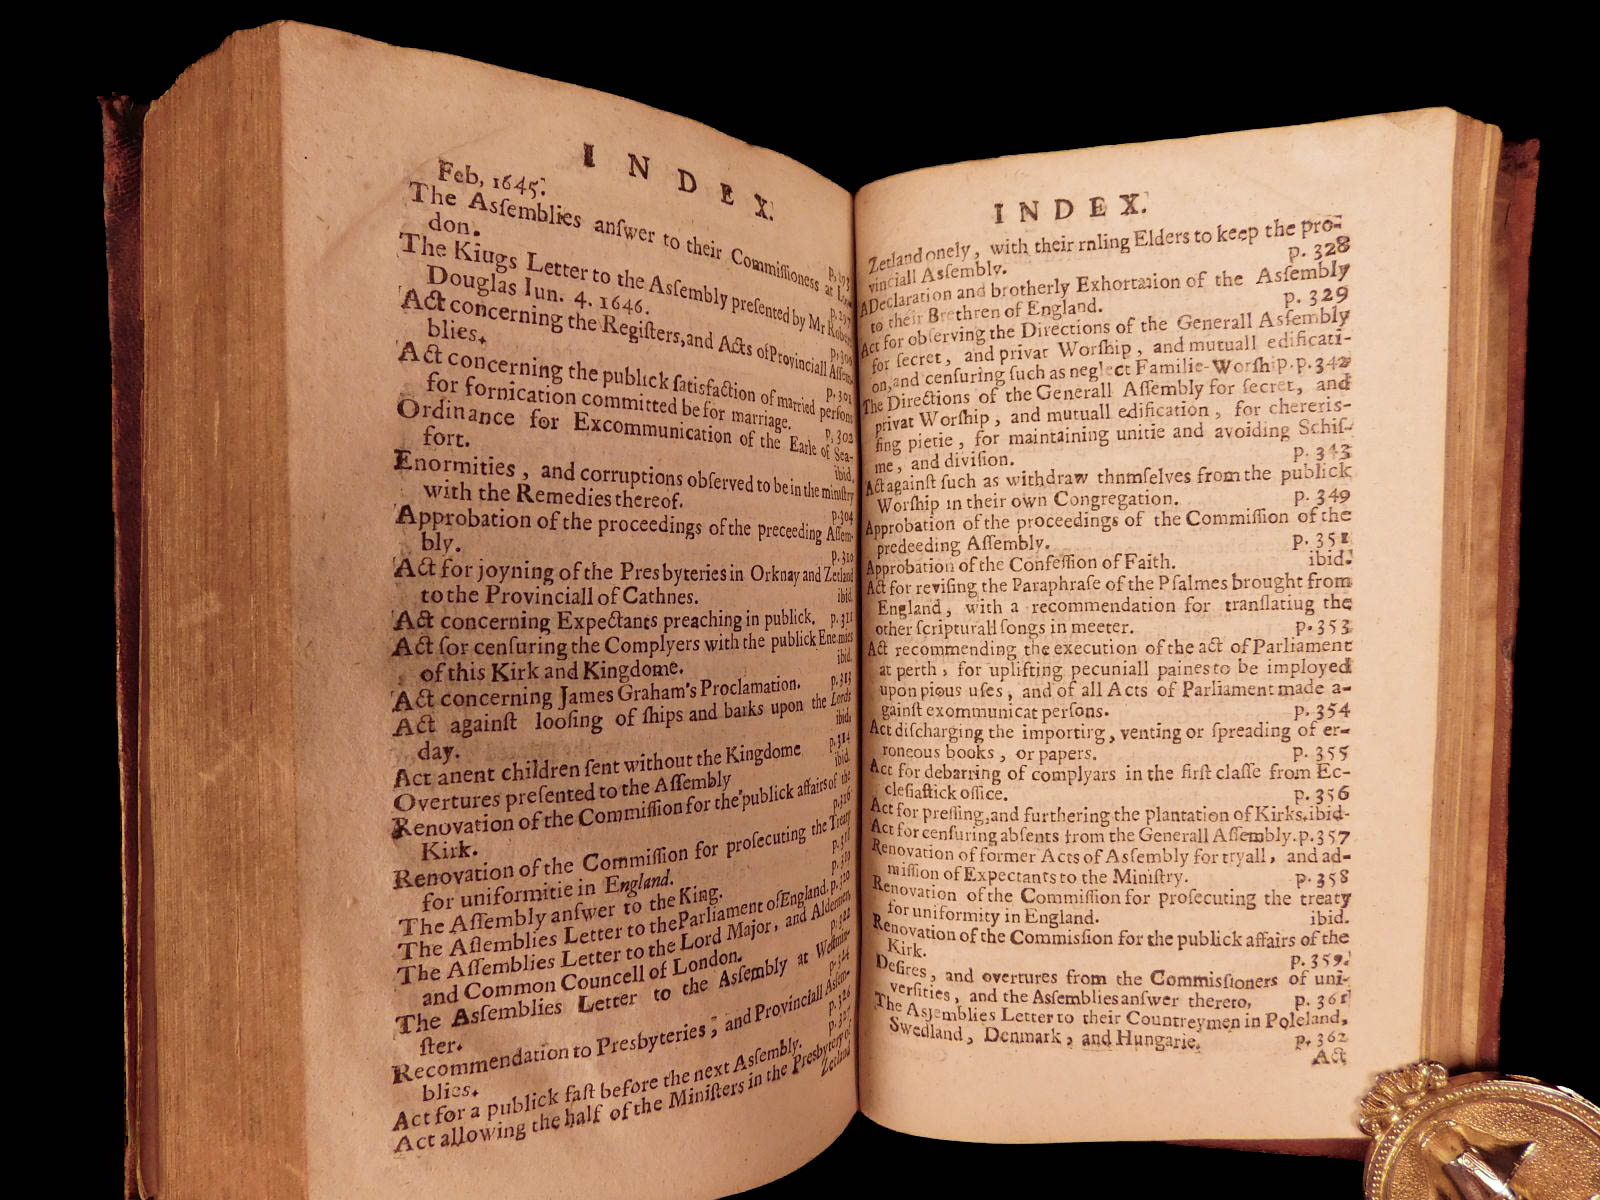 INDEX.
Feb, 1645.
The Aſſemblies anſwer to their Commiſſioness at Lon-
don. p. 297
The Kiugs Letter to the Aſſembly preſented by Mr Robert
Douglas Iun. 4. 1646. p. 300
Act concerning the Regiſters, and Acts of Provinciall Aſſem-
blies. p. 301
Act concerning the publick ſatisfaction of married perſons
for fornication committed befor marriage. p. 302
Ordinance for Excommunication of the Earle of Sea-
fort. ibid.
Enormities, and corruptions obſerved to be in the miniſtry
with the Remedies thereof. p. 304
Approbation of the proceedings of the preceeding Aſſem-
bly. p. 310
Act for joyning of the Presbyteries in Orknay and Zetland
to the Provinciall of Cathnes. ibid.
Act concerning Expectants preaching in publick. p. 311
Act for cenſuring the Complyers with the publick Enemies
of this Kirk and Kingdome. ibid.
Act concerning James Graham's Proclamation. p. 313
Act againſt looſing of ſhips and barks upon the Lords
day. ibid.
Act anent children ſent without the Kingdome p. 314
Overtures preſented to the Aſſembly ibid.
Renovation of the Commiſſion for the publick affairs of the
Kirk. p. 316
Renovation of the Commiſſion for proſecuting the Treaty
for uniformitie in England.
The Aſſembly anſwer to the King.
The Aſſemblies Letter to the Parliament of England. p. 320
The Aſſemblies Letter to the Lord Major, and Aldermen,
and Common Councell of London. p. 322
The Aſſemblies Letter to the Aſſembly at Weſtmin-
ſter. p. 324
Recommendation to Presbyteries, and Provinciall Aſſem-
blies. p. 326
Act for a publick faſt before the next Aſſembly. p. 327
Act allowing the half of the Miniſters in the Presbytery of
Zetland
INDEX.
Zetland onely, with their rnling Elders to keep the pro-
vinciall Aſſembly. p. 328
A Declaration and brotherly Exhortation of the Aſſembly
to their Brethren of England. p. 329
Act for obſerving the Directions of the Generall Aſſembly
for ſecret, and privat Worſhip, and mutuall edificati-
on, and cenſuring ſuch as neglect Familie-Worſhip. p. 342
The Directions of the Generall Aſſembly for ſecret, and
privat Worſhip, and mutuall edification, for chereriſ-
ſing pietie, for maintaining unitie and avoiding Schiſ-
me, and diviſion. p. 343
Act againſt ſuch as withdraw thnmſelves from the publick
Worſhip in their own Congregation. p. 349
Approbation of the proceedings of the Commiſſion of the
predeeding Aſſembly. p. 351
Approbation of the Confeſſion of Faith. ibid.
Act for reviſing the Paraphraſe of the Pſalmes brought from
England, with a recommendation for tranſlatiug the
other ſcripturall ſongs in meeter. p. 353
Act recommending the execution of the act of Parliament
at perth, for uplifting pecuniall paines to be imployed
upon pious uſes, and of all Acts of Parliament made a-
gainſt exommunicat perſons. p. 354
Act diſcharging the importirg, venting or ſpreading of er-
roneous books, or papers. p. 355
Act for debarring of complyars in the firſt claſſe from Ec-
cleſiaſtick office. p. 356
Act for preſſing, and furthering the plantation of Kirks. ibid.
Act for cenſuring abſents from the Generall Aſſembly. p. 357
Renovation of former Acts of Aſſembly for tryall, and ad-
miſſion of Expectants to the Miniſtry. p. 358
Renovation of the Commiſſion for proſecuting the treaty
for uniformity in England. ibid.
Renovation of the Commiſſion for the publick affairs of the
Kirk. p. 359.
Deſires, and overtures from the Commiſſioners of uni-
verſities, and the Aſſemblies anſwer thereto, p. 361
The Aſſemblies Letter to their Countreymen in Poleland,
Swedland, Denmark, and Hungarie. p. 362
Act